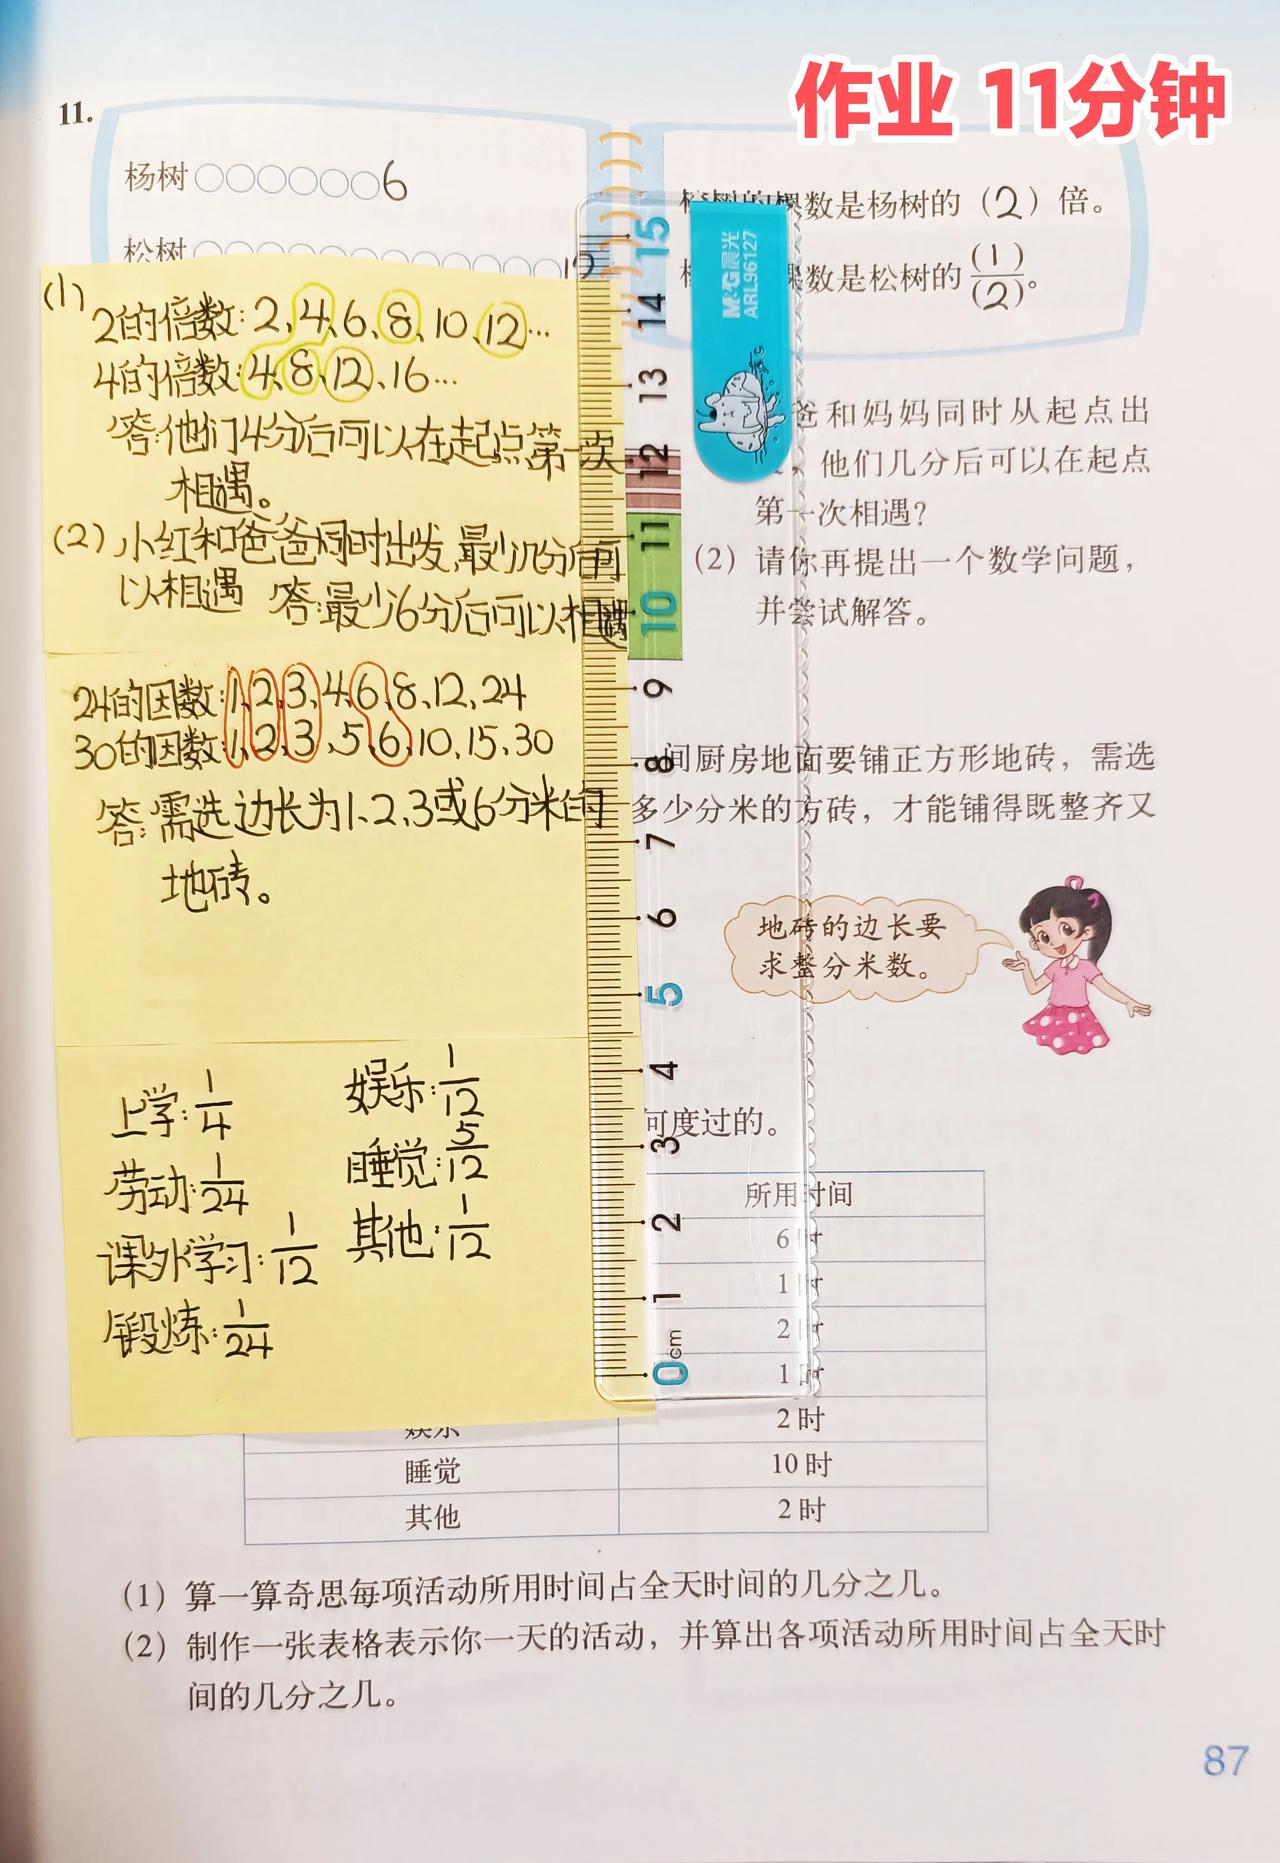 作业 11分钟
11.
杨树 6
松树 12
棵数是杨树的（2）倍。
棵数是松树的 (1)/(2)。
(1)
2的倍数:2、4、6、8、10、12…
4的倍数:4、8、12、16…
答:他们4分后可以在起点第一次
相遇。
(2) 小红和爸爸同时出发,最少几分后可
以相遇 答:最少6分后可以相遇
爸和妈妈同时从起点出
他们几分后可以在起点
第一次相遇？
（2）请你再提出一个数学问题，
并尝试解答。
24的因数:1、2、3、4、6、8、12、24
30的因数:1、2、3、5、6、10、15、30
答:需选边长为1、2、3或6分米的
地砖。
间厨房地面要铺正方形地砖，需选
多少分米的方砖，才能铺得既整齐又
地砖的边长要
求整分米数。
上学:1/4
劳动:1/24
课外学习:1/12
锻炼:1/24
娱乐:1/12
睡觉:5/12
其他:1/12
何度过的。
所用时间
6时
1时
2时
1时
娱乐 2时
睡觉 10时
其他 2时
（1）算一算奇思每项活动所用时间占全天时间的几分之几。
（2）制作一张表格表示你一天的活动，并算出各项活动所用时间占全天时
间的几分之几。
87
M&G晨光
ARL96127
15
14
13
12
11
10
9
8
7
6
5
4
3
2
1
0cm